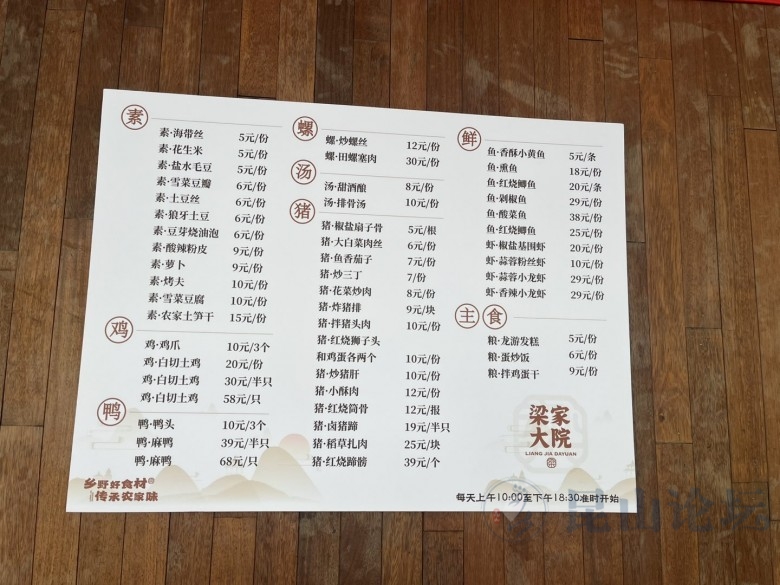 素
素·海带丝 5元/份
素·花生米 5元/份
素·盐水毛豆 5元/份
素·雪菜豆瓣 6元/份
素·土豆丝 6元/份
素·狼牙土豆 6元/份
素·豆芽烧油泡 6元/份
素·酸辣粉皮 9元/份
素·萝卜 9元/份
素·烤夫 10元/份
素·雪菜豆腐 10元/份
素·农家土笋干 15元/份
鸡
鸡·鸡爪 10元/3个
鸡·白切土鸡 20元/份
鸡·白切土鸡 30元/半只
鸡·白切土鸡 58元/只
鸭
鸭·鸭头 10元/3个
鸭·麻鸭 39元/半只
鸭·麻鸭 68元/只
乡野好食材
传承农家味
螺
螺·炒螺丝 12元/份
螺·田螺塞肉 30元/份
汤
汤·甜酒酿 8元/份
汤·排骨汤 10元/份
猪
猪·椒盐扇子骨 5元/根
猪·大白菜肉丝 6元/份
猪·鱼香茄子 7元/份
猪·炒三丁 7/份
猪·花菜炒肉 8元/份
猪·炸猪排 9元/块
猪·拌猪头肉 10元/份
猪·红烧狮子头
和鸡蛋各两个 10元/份
猪·炒猪肝 10元/份
猪·小酥肉 12元/份
猪·红烧筒骨 12元/报
猪·卤猪蹄 19元/半只
猪·稻草扎肉 25元/块
猪·红烧蹄髈 39元/个
鲜
鱼·香酥小黄鱼 5元/条
鱼·熏鱼 18元/份
鱼·红烧鲫鱼 20元/条
鱼·剁椒鱼 29元/份
鱼·酸菜鱼 38元/份
鱼·红烧鲫鱼 25元/份
虾·椒盐基围虾 20元/份
虾·蒜蓉粉丝虾 10元/份
虾·蒜蓉小龙虾 29元/份
虾·香辣小龙虾 29元/份
主食
粮·龙游发糕 5元/份
粮·蛋炒饭 6元/份
粮·拌鸡蛋干 9元/份
梁家
大院
LIANG JIA DAYUAN
每天上午10:00至下午18:30准时开始
昆山论坛